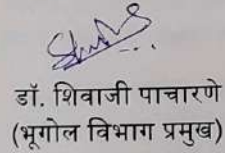 डॉ. शिवाजी पाचारणे
(भूगोल विभाग प्रमुख)